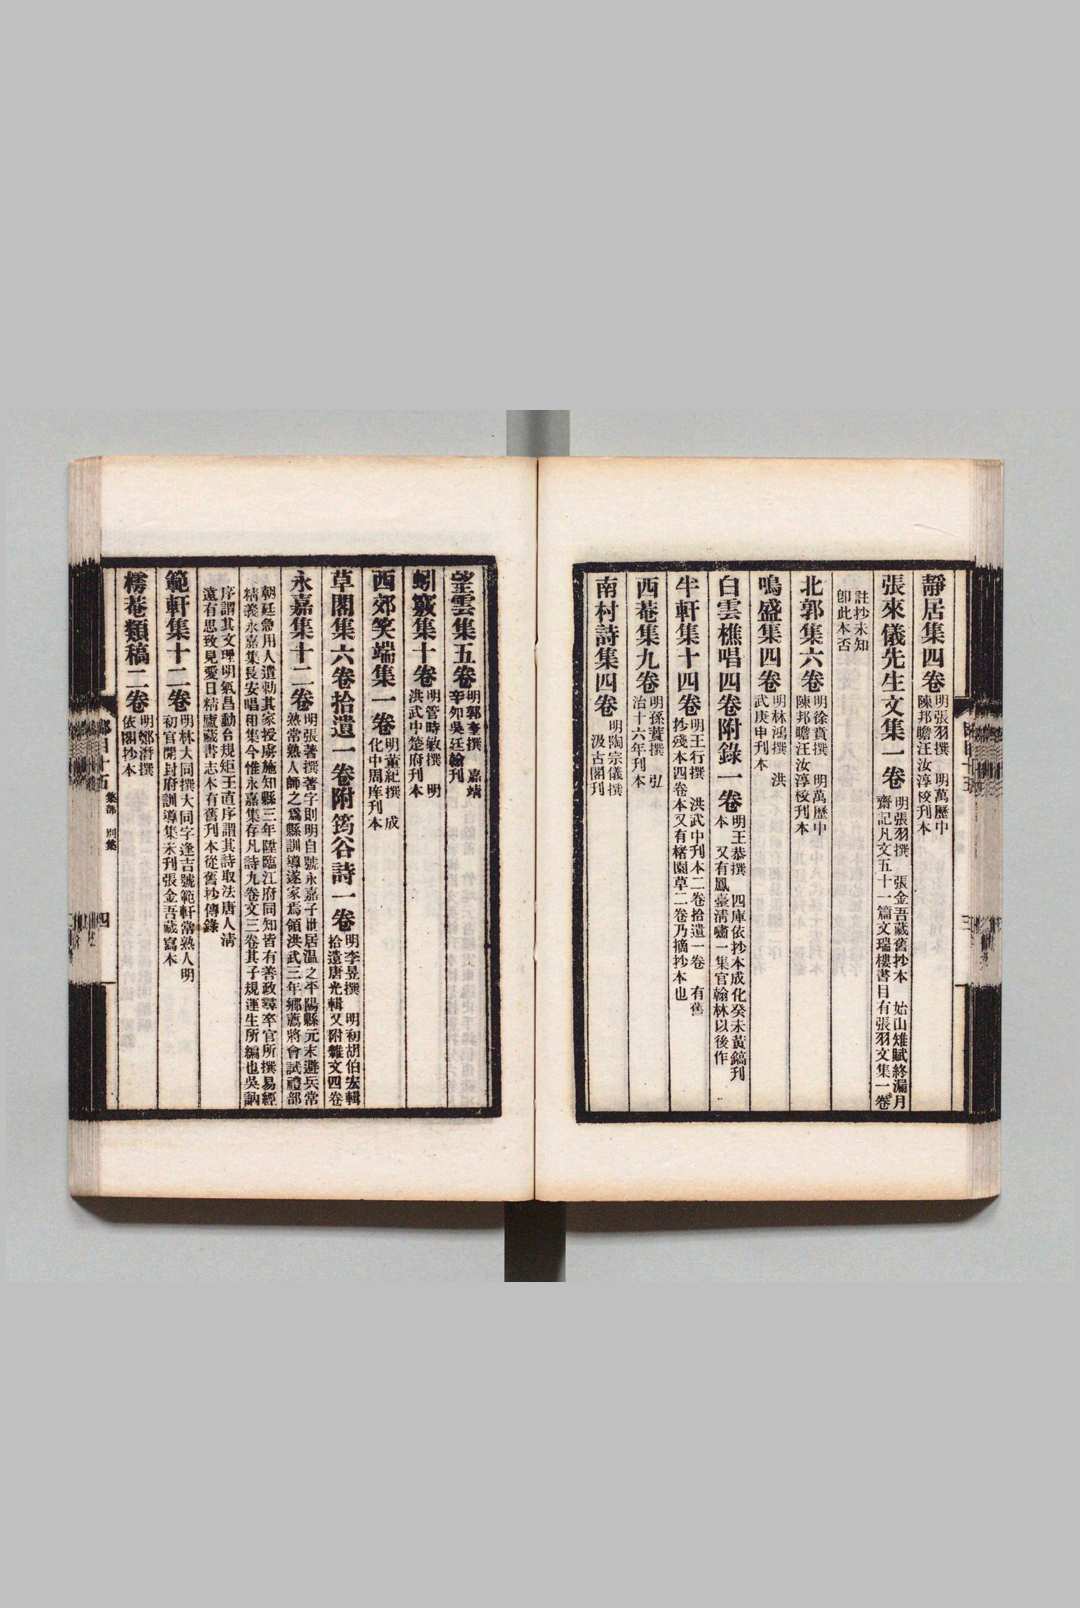 靜居集四卷
明張羽撰　明萬歷中
陳邦瞻汪汝淳校刊本
張來儀先生文集一卷
明張羽撰　張金吾藏舊抄本　始山雉賦終漏月
齋記凡文五十一篇文瑞樓書目有張羽文集一卷
註抄未知
卽此本否
北郭集六卷
明徐賁撰　明萬歷中
陳邦瞻汪汝淳校刊本
鳴盛集四卷
明林鴻撰　洪
武庚申刊本
白雲樵唱四卷附錄一卷
明王恭撰　四庫依抄本成化癸未黃鎬刊
本　又有鳳臺淸嘯一集官翰林以後作
半軒集十四卷
明王行撰　洪武中刊本二卷拾遺一卷　有舊
抄殘本四卷本又有楮園草二卷乃摘抄本也
西菴集九卷
明孫蕡撰　弘
治十六年刊本
南村詩集四卷
明陶宗儀撰
汲古閣刊
望雲集五卷
明郭奎撰　嘉靖
辛卯吳廷翰刊
蚓竅集十卷
明管時敏撰　明
洪武中楚府刊本
西郊笑端集一卷
明董紀撰　成
化中周庠刊本
草閣集六卷拾遺一卷附筠谷詩一卷
明李昱撰　明初胡伯宏輯
拾遺唐光輯又附雜文四卷
永嘉集十二卷
明張著撰著字則明自號永嘉子世居溫之平陽縣元末避兵常
熟常熟人師之爲縣訓導遂家焉領洪武三年鄉薦將會試禮部
朝廷急用人遣勅其家授膚施知縣三年陞臨江府同知皆有善政尋卒官所撰易經
精義永嘉集長安唱和集今惟永嘉集存凡詩九卷文三卷其子規運生所編也吳訥
序謂其文理明氣昌動合規矩王直序謂其詩取法唐人淸
遠有思致見愛日精廬藏書志本有舊刊本從舊抄傳錄
範軒集十二卷
明林大同撰大同字逢吉號範軒常熟人明
初官開封府訓導集未刊張金吾藏寫本
樗菴類稿二卷
明鄭潛撰
依閣抄本
集部　別集
四